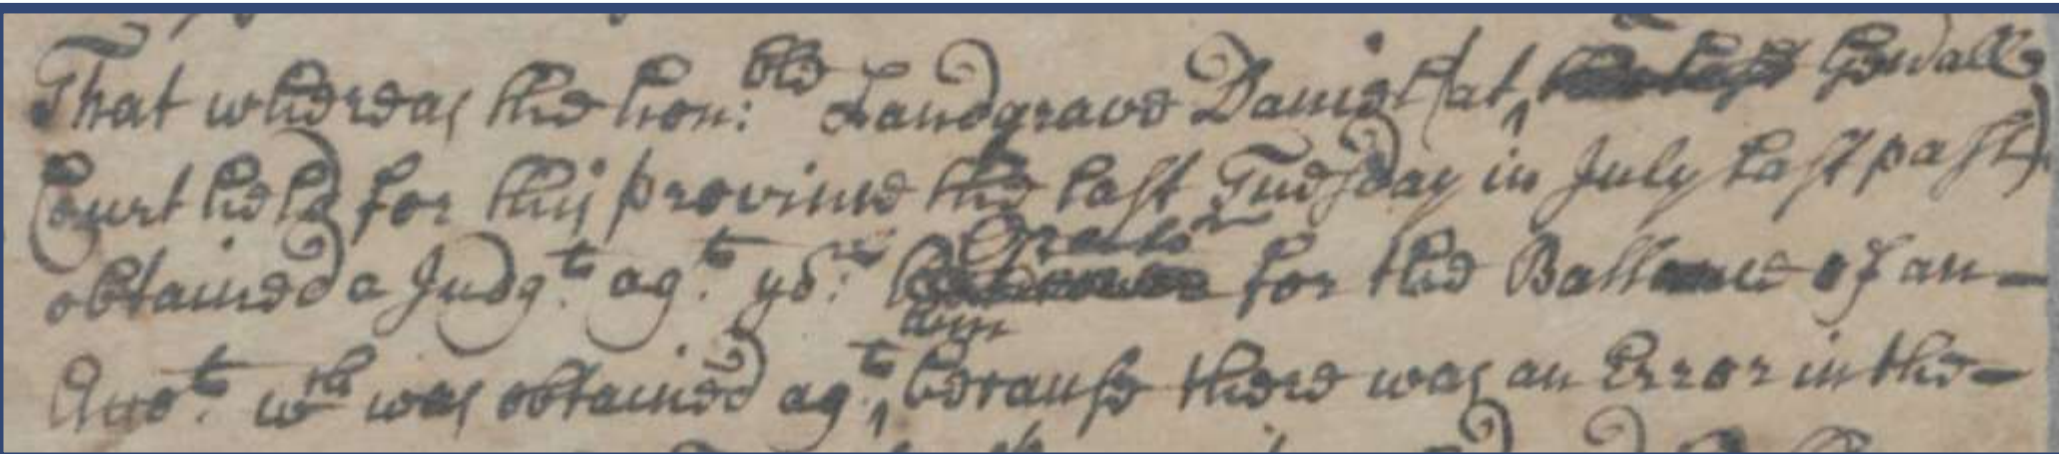 That whereas the hon: ble Landgrave Daniel at Genall
Court held for this province the last Tuesday in July last past
obtained a Judgt. agt. yor. Orator for the Ballance of an
Accot. wch was obtained agt. him because there was an Error in the